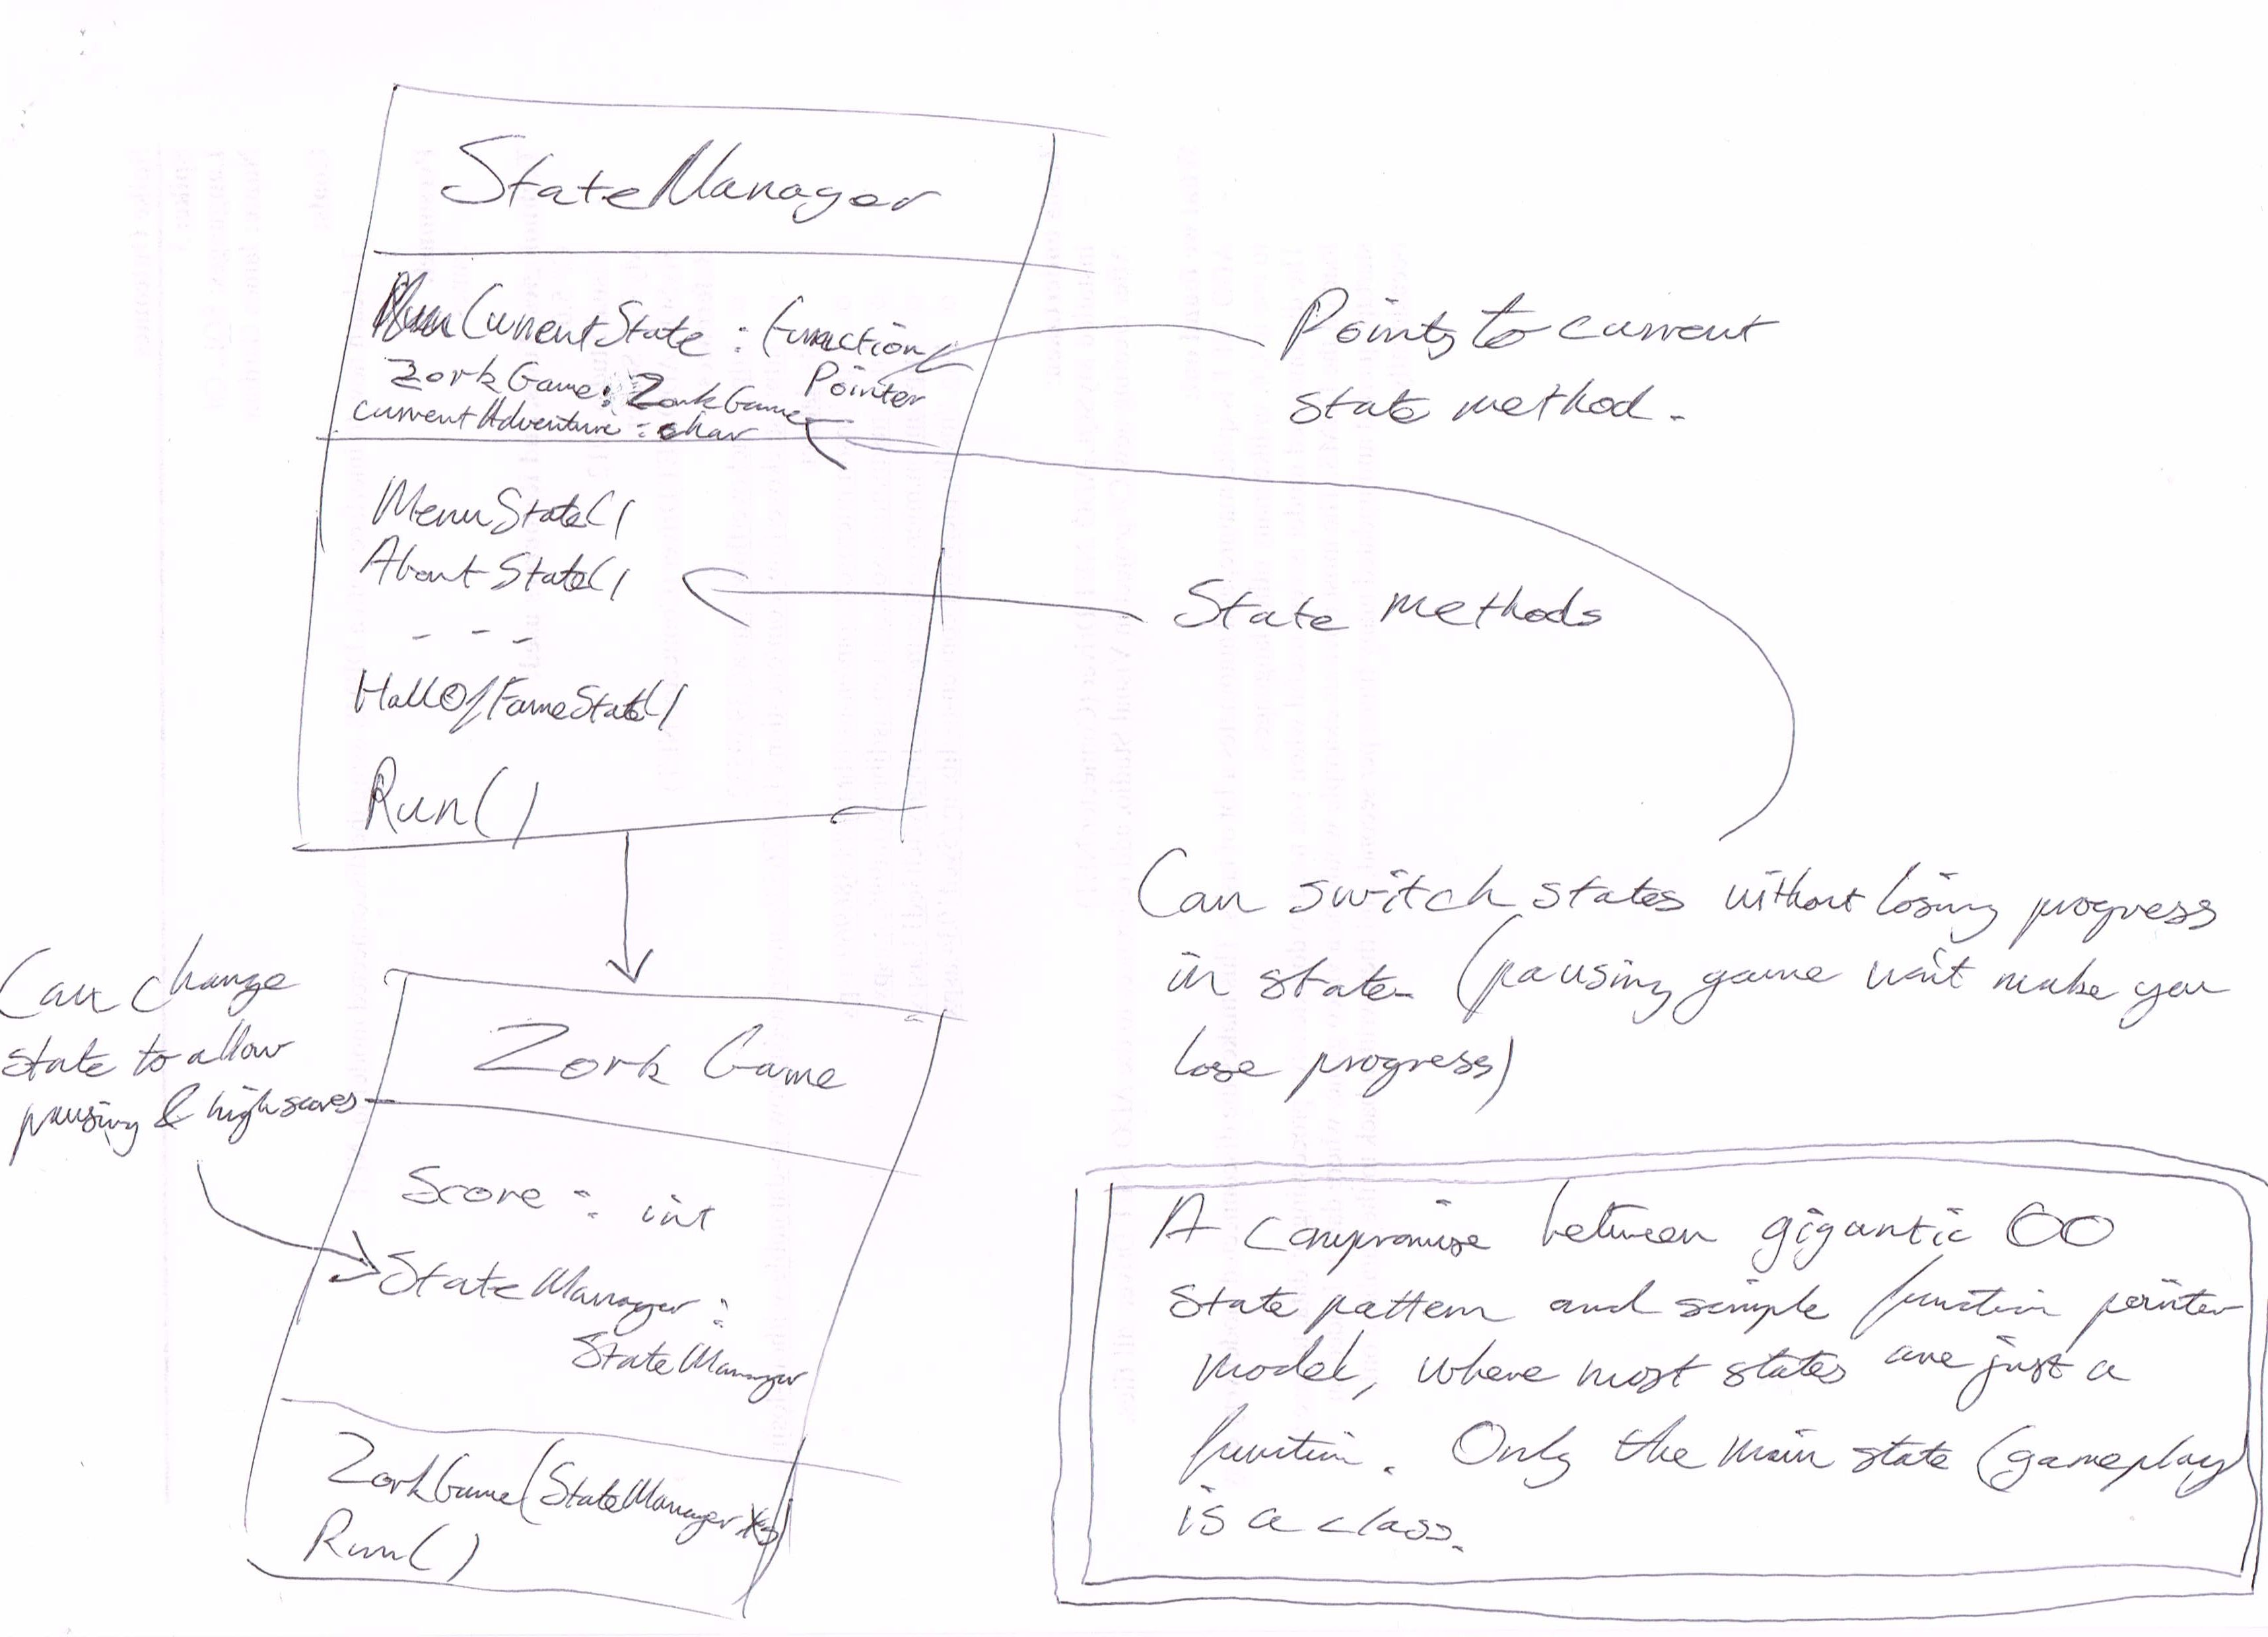 StateManager
CurrentState : function
Pointer
ZorkGame : ZorkGame
currentAdventure : char
MenuState()
AboutState()
- - -
HallOfFameState()
Run()
Points to current
state method.
State methods
Can switch states without losing progress
in state (pausing game won't make you
lose progress)
Can change
state to allow
pausing & highscores
Zork Game
Score : int
StateManager :
StateManager
ZorkGame(StateManager *s)
Run()
A compromise between gigantic OO
state pattern and simple function pointer
model, where most states are just a
function. Only the main state (gameplay)
is a class.